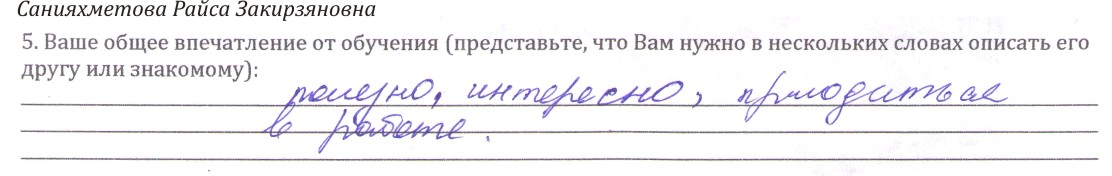 Санияхметова Райса Закирзяновна
5. Ваше общее впечатление от обучения (представьте, что Вам нужно в нескольких словах описать его
другу или знакомому):
полезно, интересно, пригодиться
в работе.